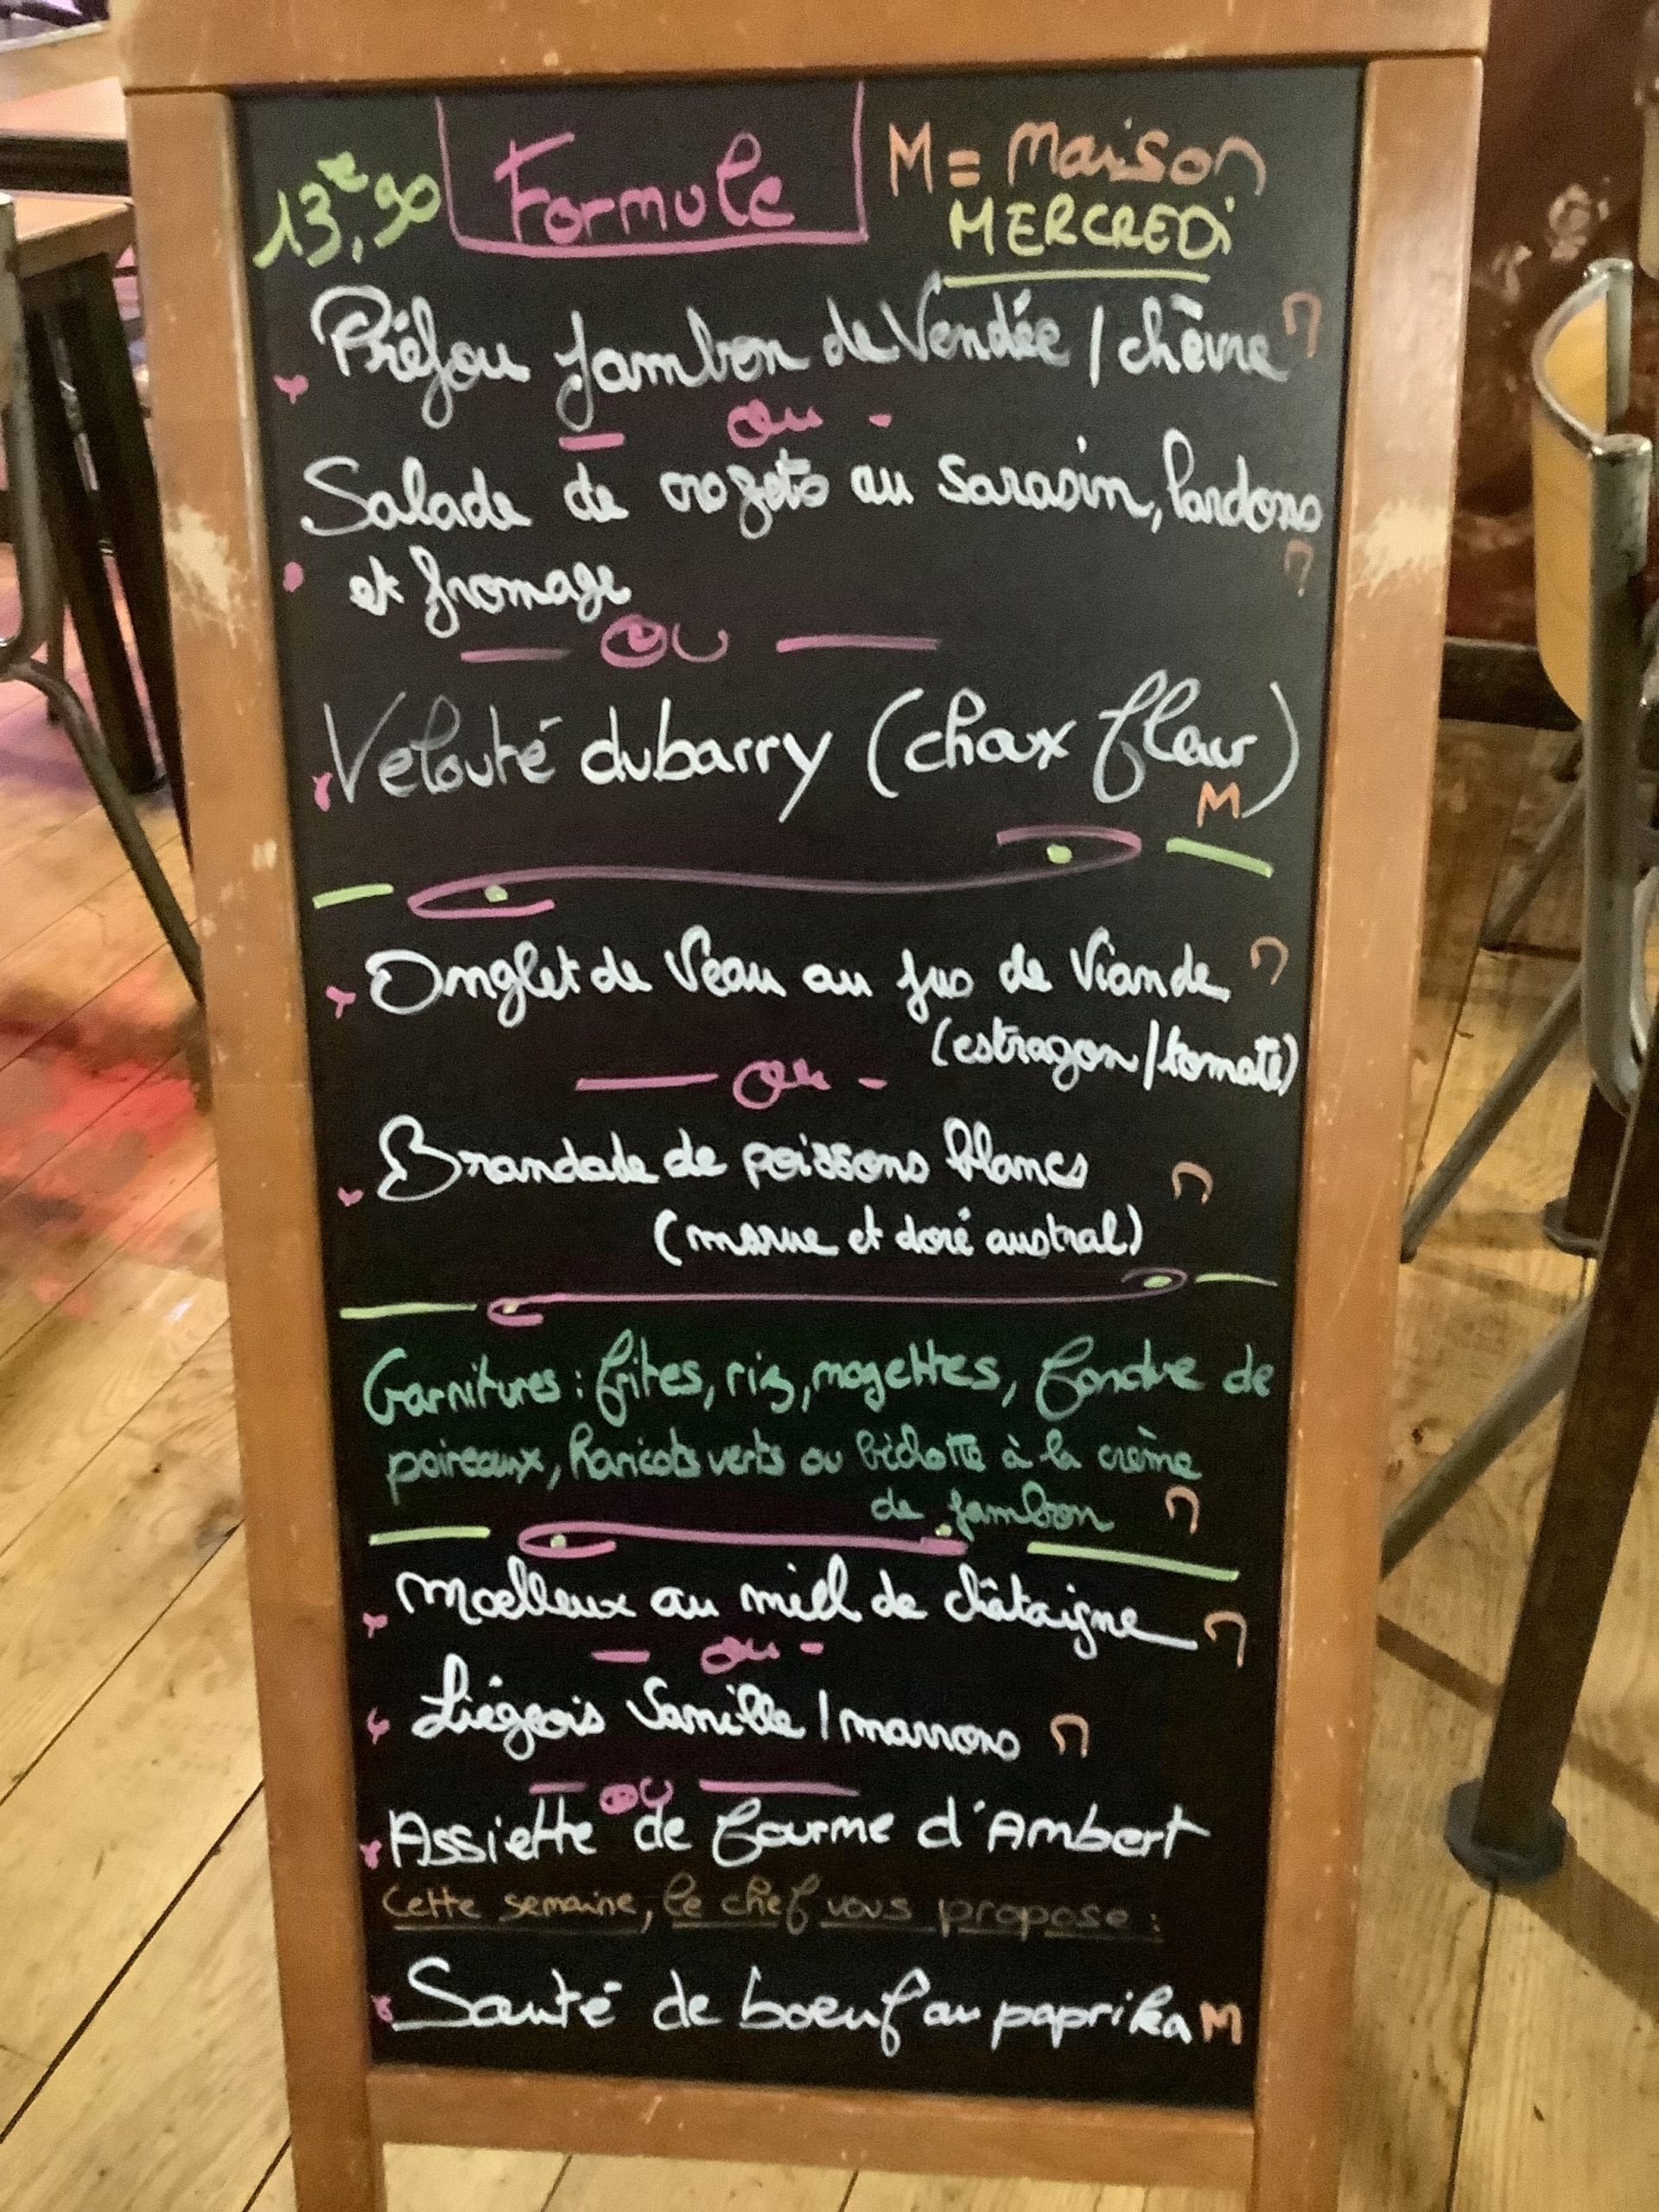 13€,90 Formule M = Maison
MERCREDi
Préfou jambon de Vendée / chèvre M
ou
Salade de crozets au sarasin, lardons
et fromage M
OU
Velouté dubarry (choux fleur)
M
Onglet de Veau au jus de Viande M
(estragon/tomate)
ou
Brandade de poissons blancs M
(morue et doré austral)
Garnitures : frites, riz, mogettes, fondue de
poireaux, haricots verts ou
à la crème
de jambon M
Moelleux au miel de châtaigne M
ou
Liégeois Vanille / marrons M
OU
Assiette de fourme d'Ambert
Cette semaine, le chef vous propose :
Sauté de boeuf au paprika M